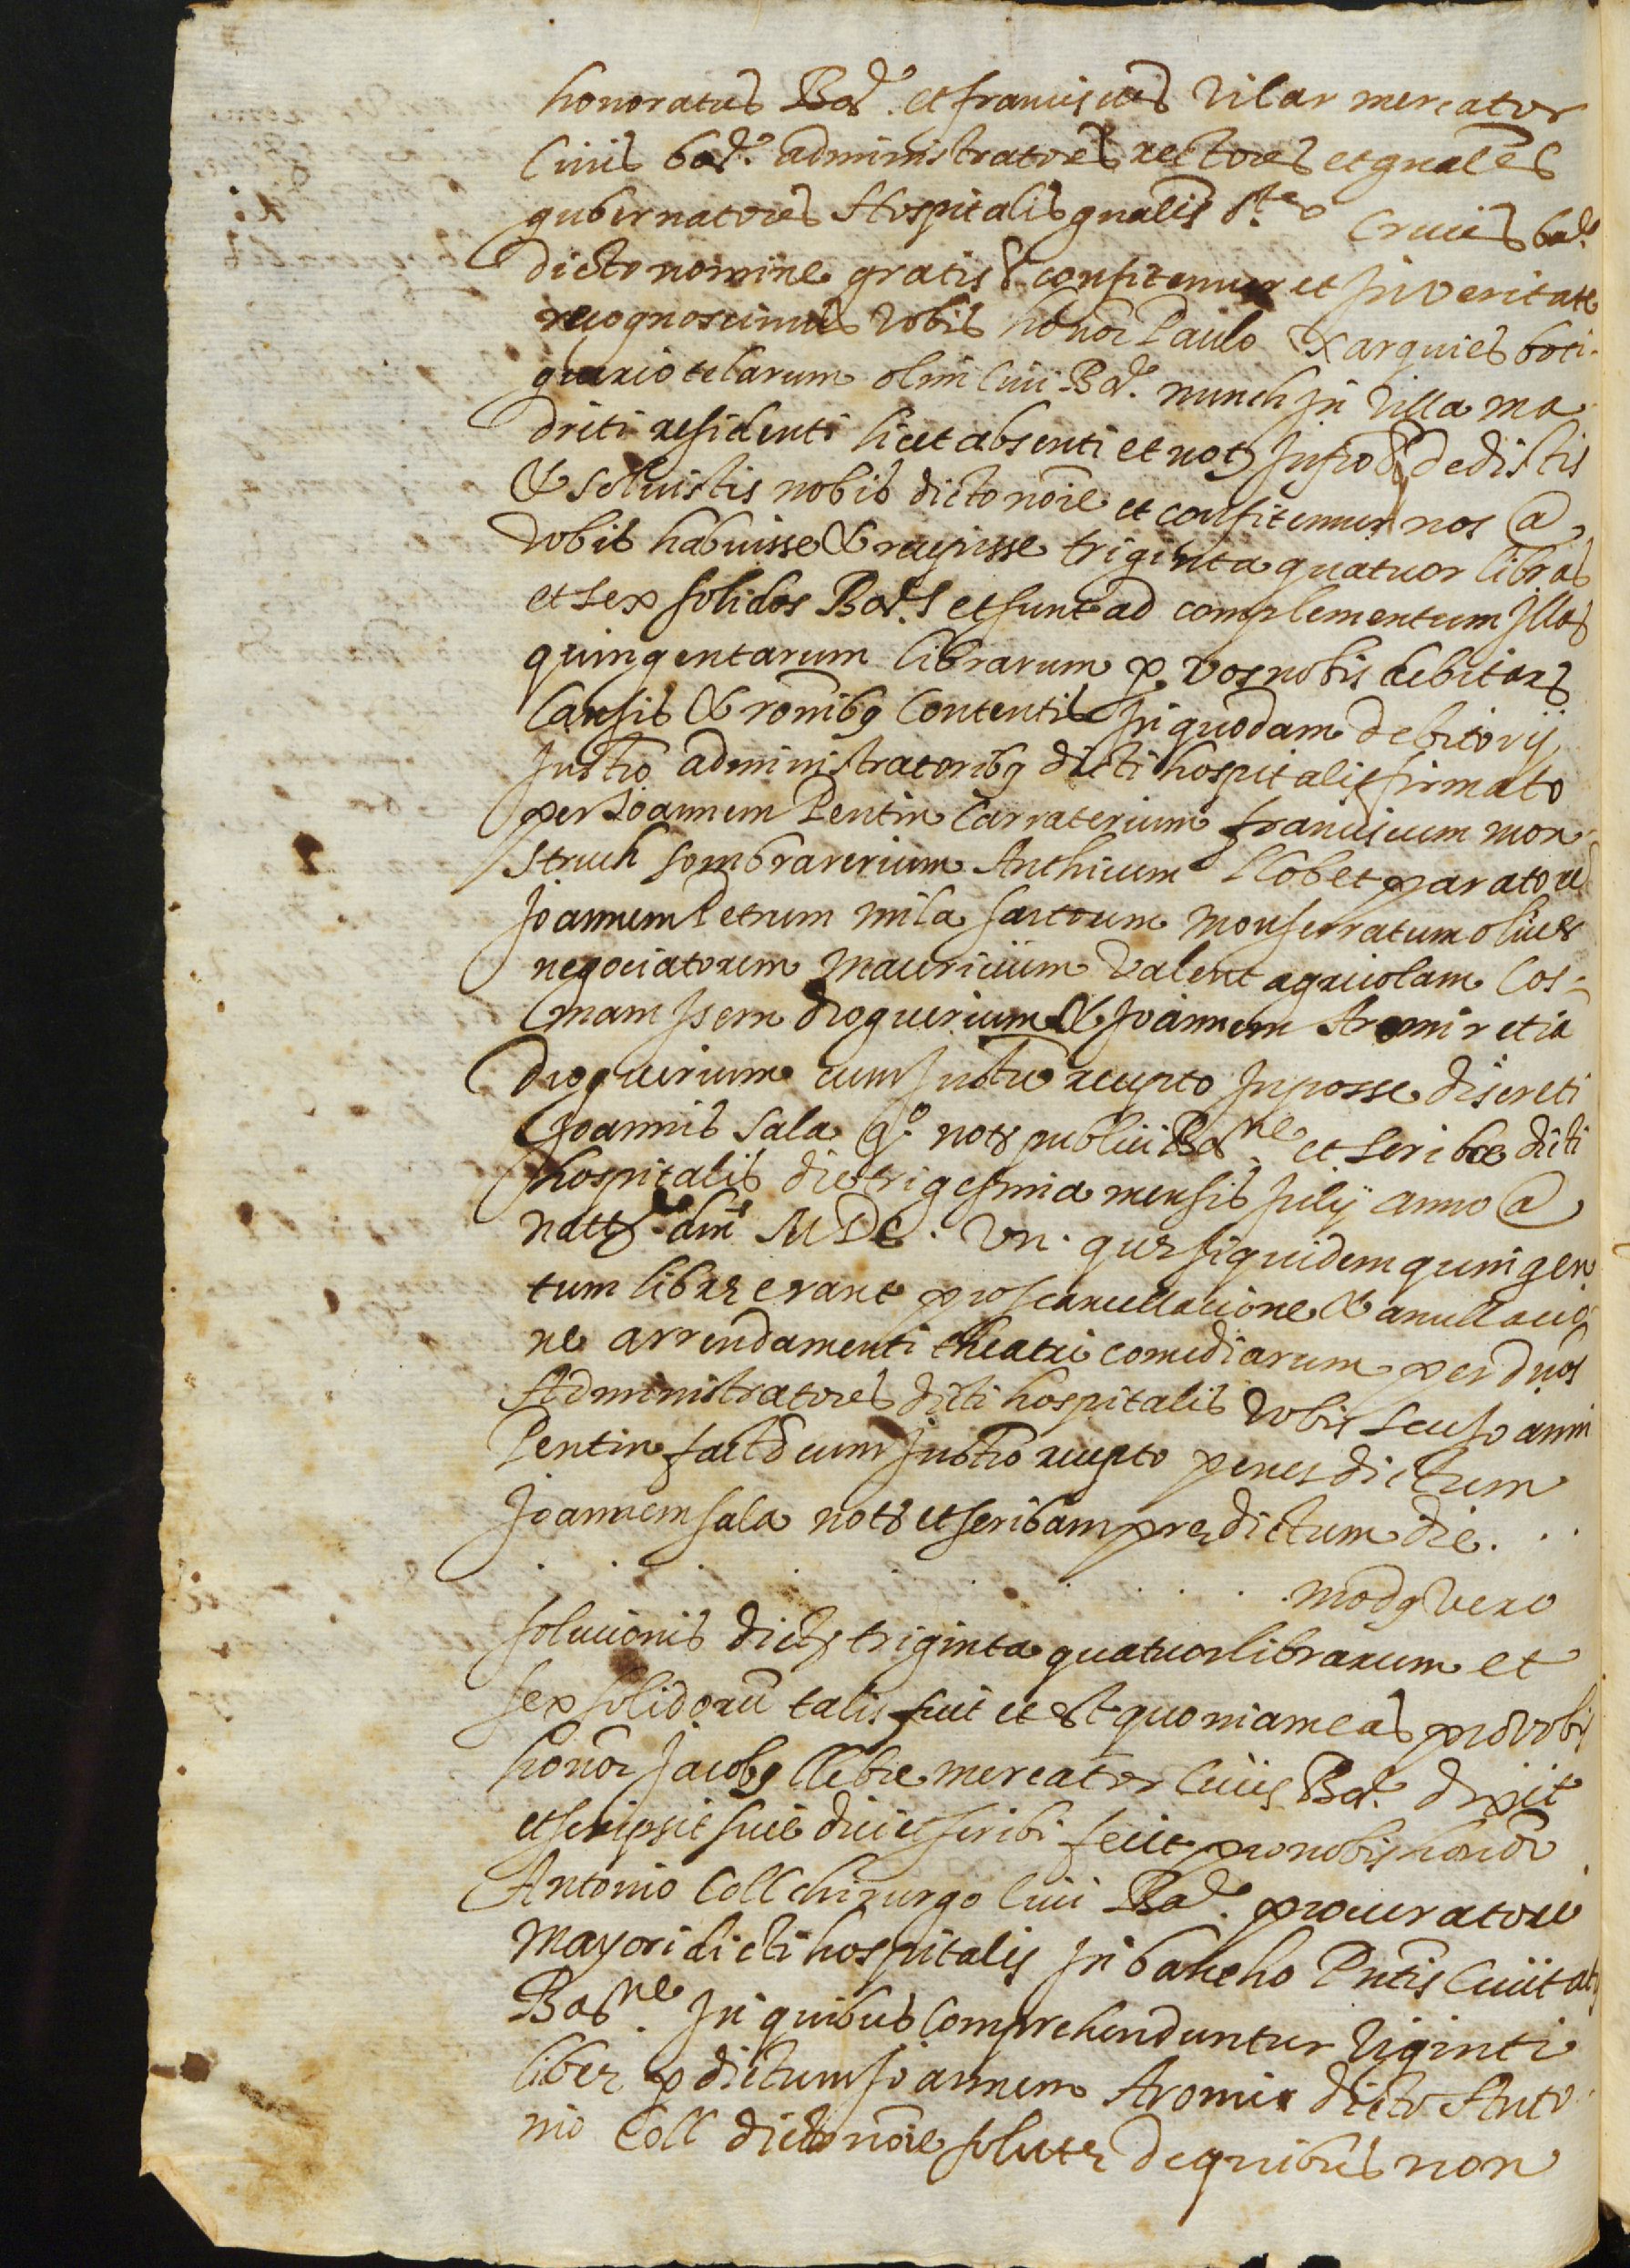 honoratus Bar. et franciscus Vilar mercator
Civis bar. administratores rectores et gnales
gubernatores Hospitalis gnalis Ste Crucis bar.
dicto nomine gratis & confitemur et In veritate
recognoscimus vobis honor Paulo Xarquies boti-
guerio telarum olim Civi Bar. nunch In Villa ma
driti residenti licet absenti et not Infro & dedistis
& solvistis nobis dicto noie et confitemur nos a
vobis habuisse & recepisse triginta quatuor libras
et sex solidos Bar. et sunt ad complementum Illar
quingentarum librarum p vos nobis debitars
Causis & ronibq Contentis In quodam debitorij
Instro administratoribq dicti hospitalis firmato
per Joannem Pentin Carraterium franciscum mon
struch sombrarerium Anthicum Llobet paratore
Joannem Petrum mila sartorem Monserratum olives
negociatorem Mauricium Valent agricolam Cos-
mam Isern droguerium & Joannem Aromir etia
droguerium cum Instro recepto In posse discreti
Joannis Sala qo. notr publici Barne. et scribe dicti
hospitalis die trigesima mensis Julij anno a
natte dni MDC. Vn. que siquidem quingen
tum libre erant pro scancellacione & anullacio
ne arrendamenti theatri comediarum per dnos
Administratores dicti hospitalis vobis seu Joanni
Pentin facto cum Instro recepto penes dictum
Joannem sala notr et scribam predictum die. . .
. . . . . . . . . modq vero
solucionis dictr triginta quatuor librarum et
sex solidoru talis fuit et est quoniam eas pro vobis
honor Jacobq Llebre mercator Civis Bar. dixit
et scripsit sive dici et scribi fecit pro nobis honor
Antonio Coll chirurgo Civi Bar. procuratore
Mayori dicti hospitalis In bancho Pntis Civitatis
Barne. In quibus Comprehenduntur Viginti
libre p dictum Joannem Aromir dicto Anto
nio Coll dicto noie solute de quibus non